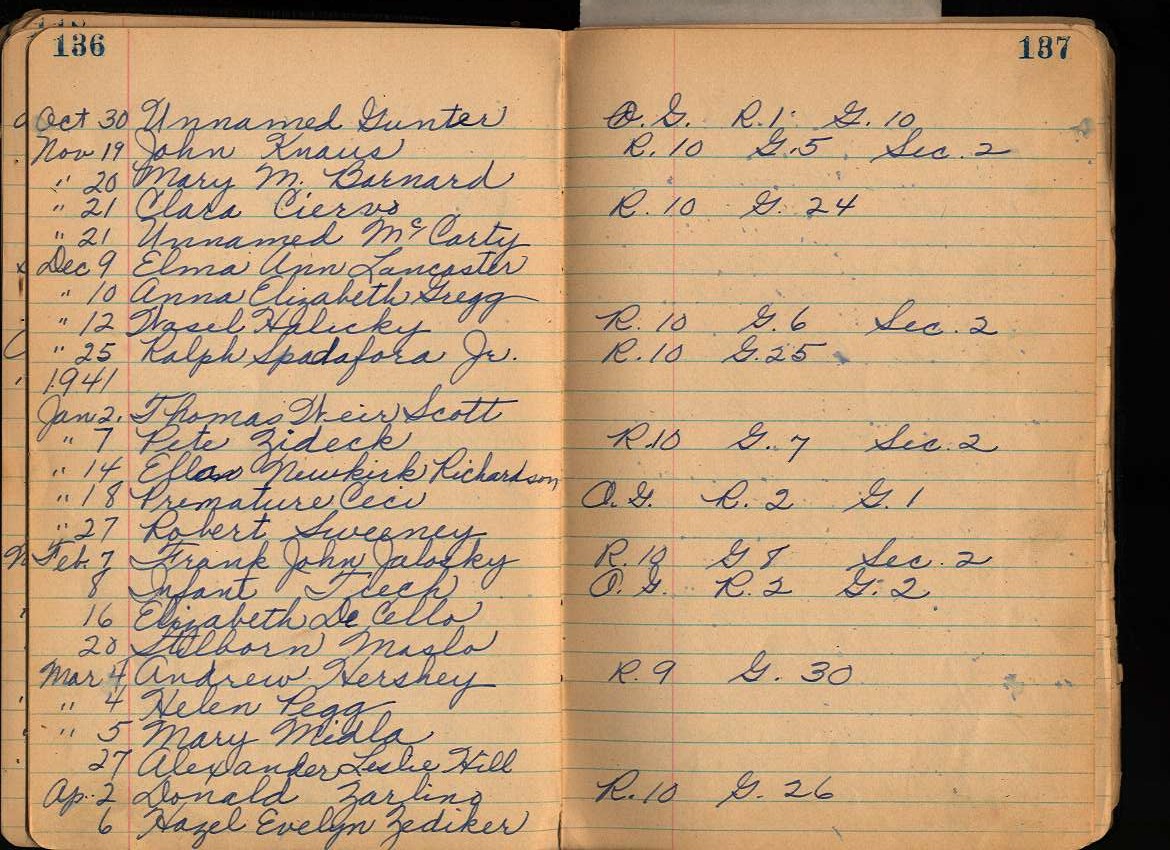 136 137
Oct 30 Unnamed Gunter O.G. R.1 G.10
Nov 19 John Knaus R.10 G.5 Sec.2
" 20 Mary M. Barnard
" 21 Clara Ciervo R.10 G.24
" 21 Unnamed McCarty
x Dec 9 Elma Ann Lancaster
" 10 Anna Elizabeth Gregg
" 12 Wasel Halicky R.10 G.6 Sec.2
" 25 Ralph Spadafora Jr. R.10 G.25
1941
Jan 2. Thomas Weir Scott
" 7 Pete Zideck R.10 G.7 Sec.2
" 14 Newkirk Richardson
" 18 Premature Ceci O.G. R.2 G.1
" 27 Robert Sweeney
Feb. 7 Frank John Jalosky R.10 G 8 Sec.2
8 Infant O.G. R.2 G.2
16 Elizabeth De Cello
20 Stilborn Maslo
Mar 4 Andrew Hershey R.9 G.30
" 4 Helen Pegg
" 5 Mary Midla
27 Alexander Leslie Hill
Ap. 2 Donald Zarling R.10 G.26
6 Hazel Evelyn Zediker